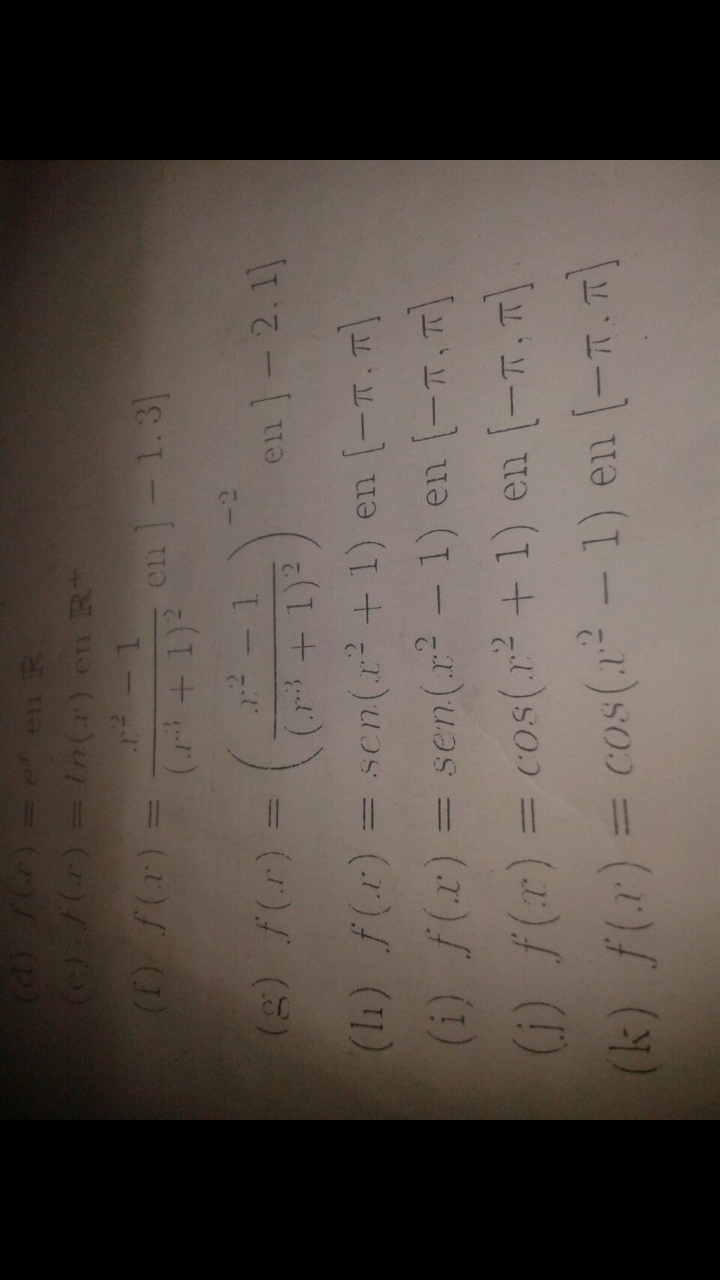 (d) f(x) = e^x en ℝ
(e) f(x) = ln(x) en ℝ⁺
(f) f(x) = \frac{x^2 - 1}{(x^3 + 1)^2} en ] − 1, 3]
(g) f(x) = \left( \frac{x^2 - 1}{(x^3 + 1)^2} \right)^{-2} en ] − 2, 1]
(h) f(x) = sen(x² + 1) en [−π, π]
(i) f(x) = sen(x² − 1) en [−π, π]
(j) f(x) = cos(x² + 1) en [−π, π]
(k) f(x) = cos(x² − 1) en [−π, π]